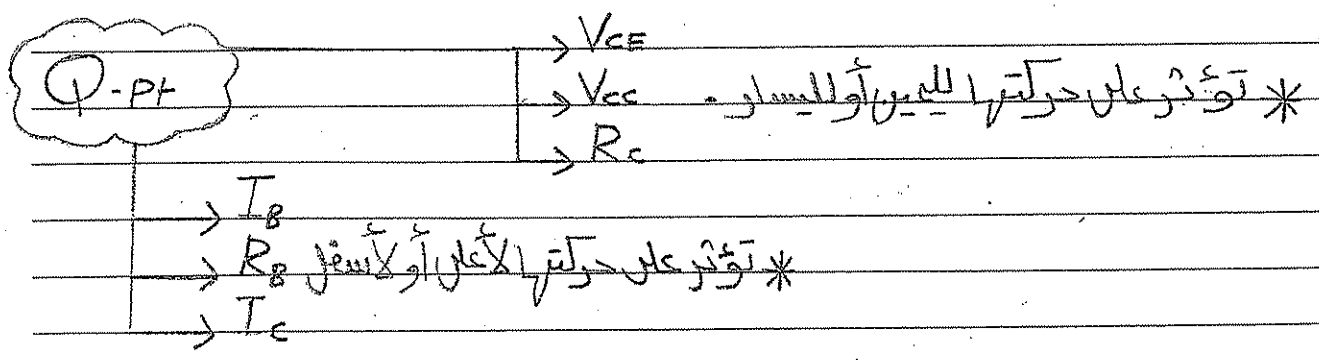 Q-pt
→ VCE
→ VCC * تؤثر على حركتها لليمين أو لليسار.
→ RC
→ IB
→ RB * تؤثر على حركتها لأعلى أو لأسفل
→ IC